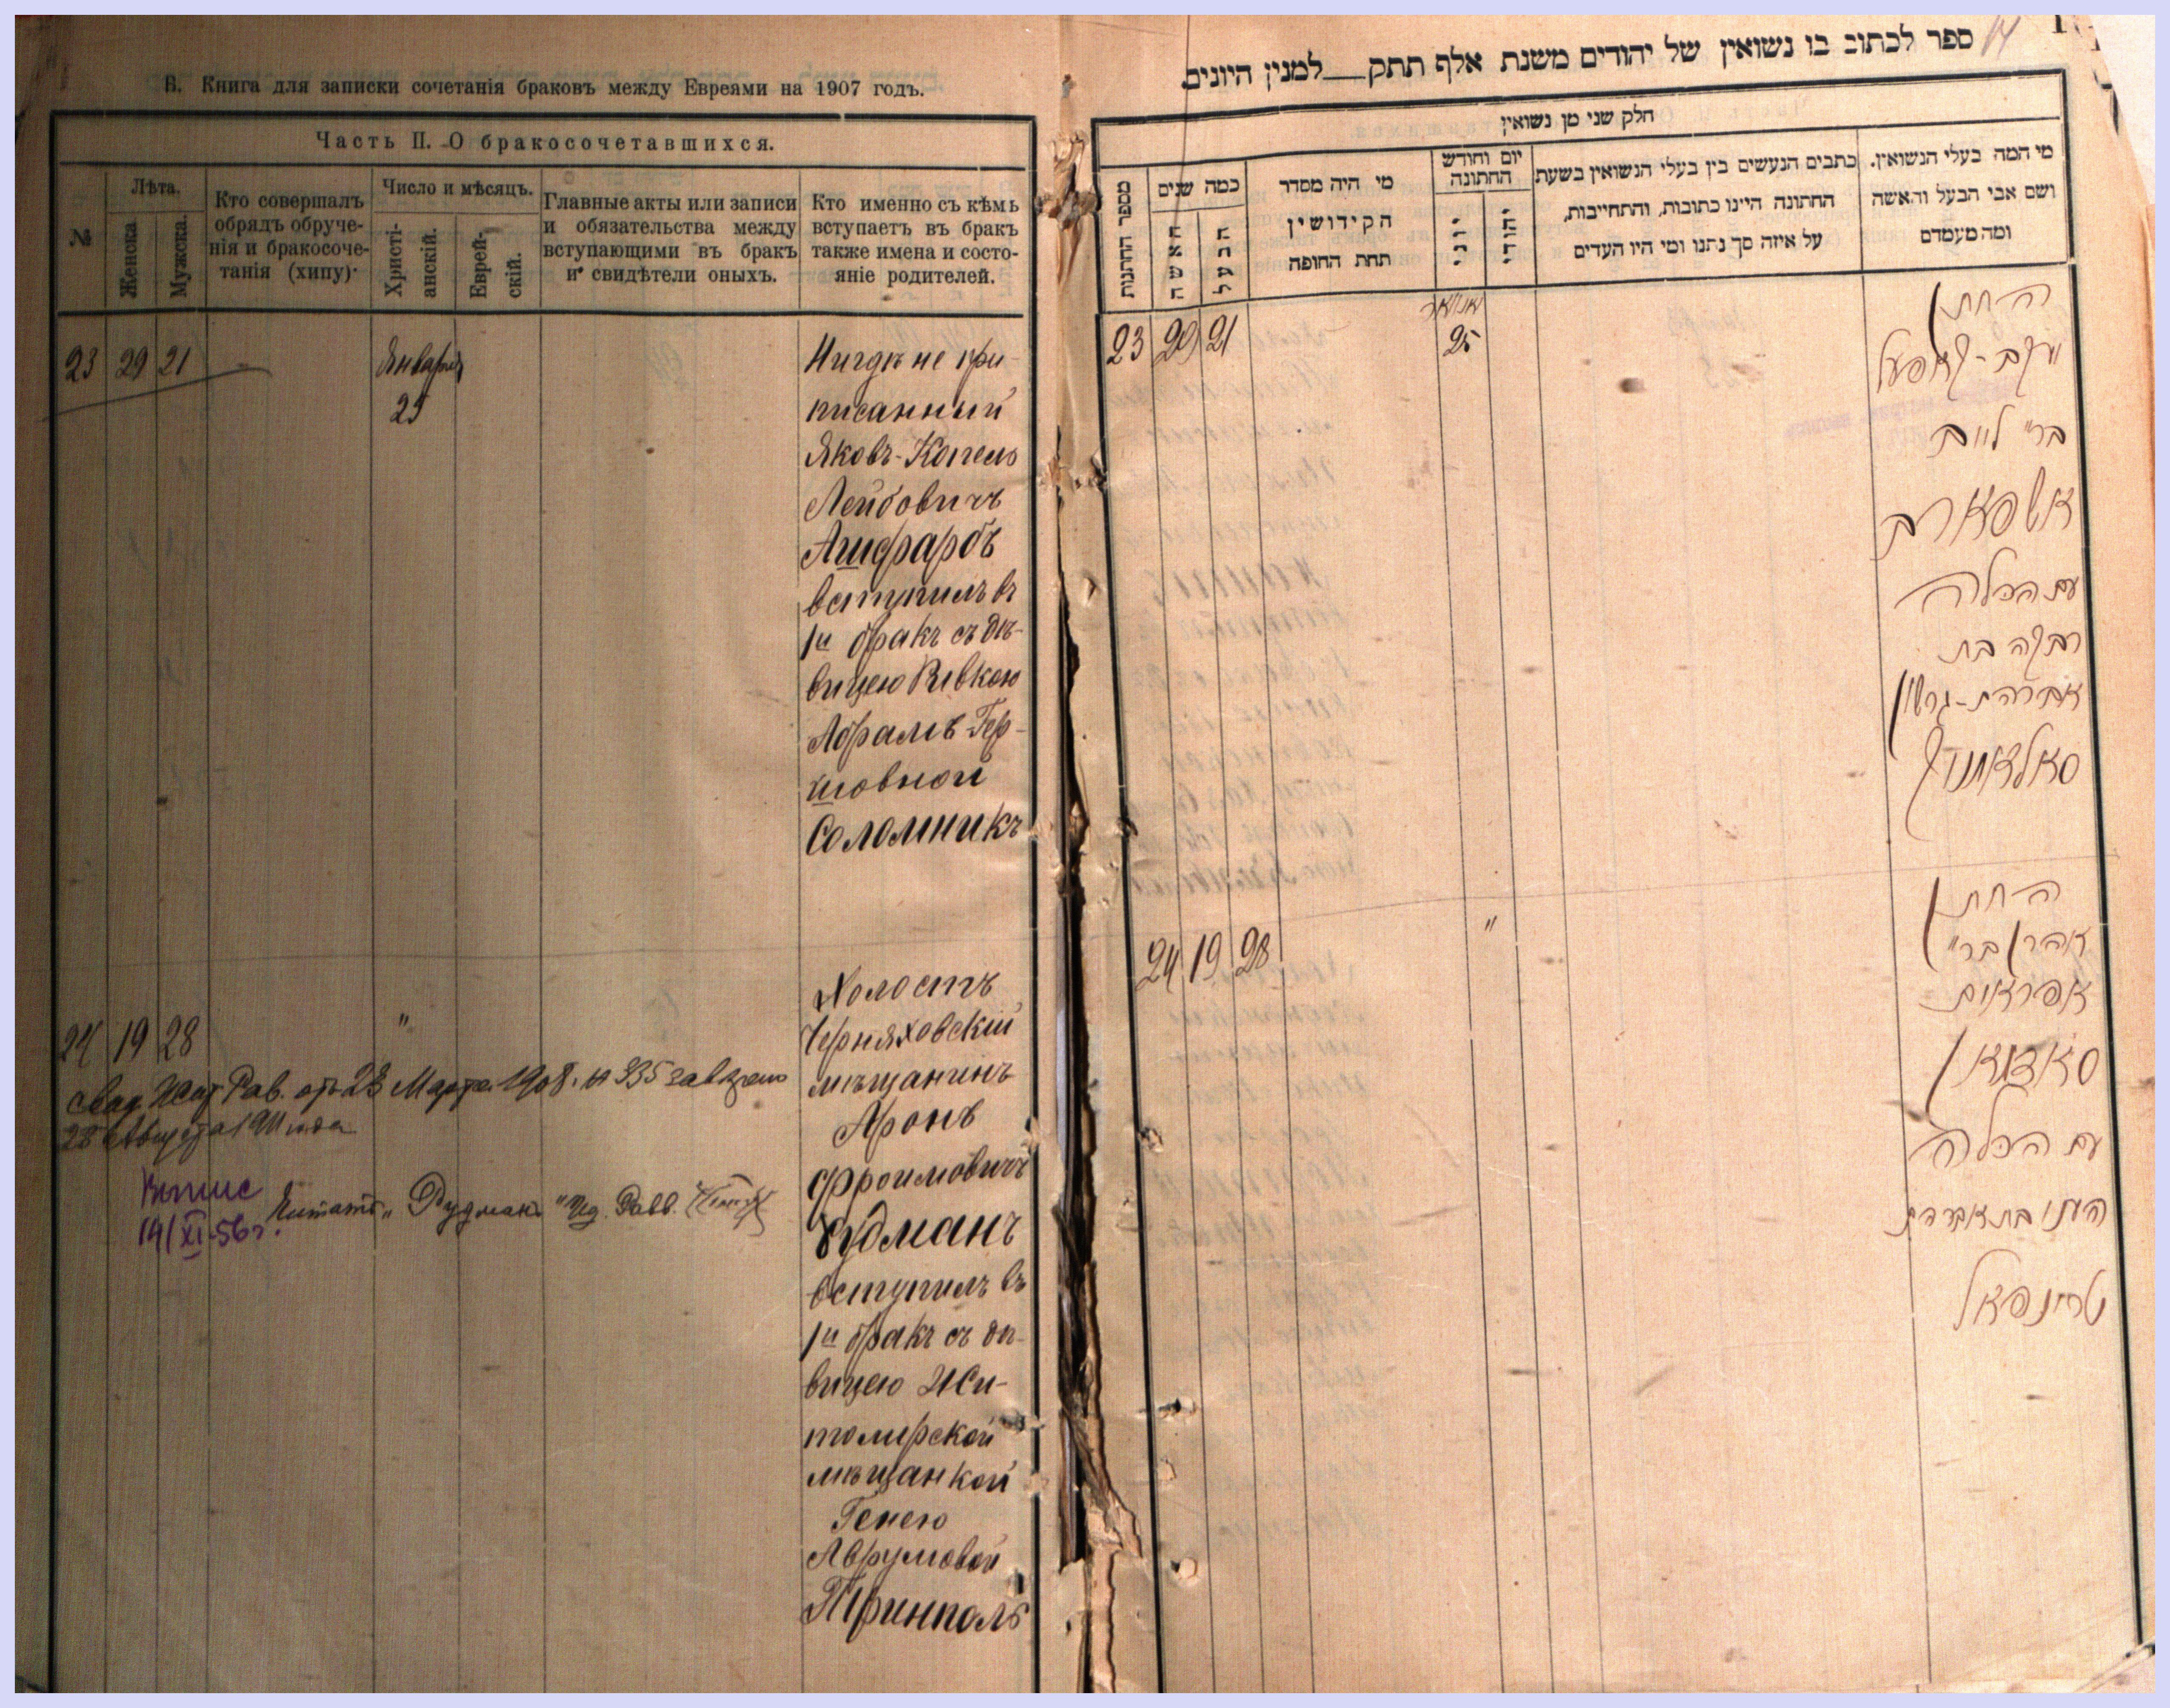 В. Книга для записки сочетанія браковъ между Евреями на 1907 годъ.
Часть II. О бракосочетавшихся.
№
Лѣта.
Женска.
Мужска.
Кто совершалъ
обрядъ обруче-
нія и бракосоче-
танія (хипу)·
Число и мѣсяцъ.
Христі-
анскій.
Еврей-
скій.
Главные акты или записи
и обязательства между
вступающими въ бракъ
и свидѣтели оныхъ.
Кто именно съ кѣмъ
вступаетъ въ бракъ
также имена и состо-
яніе родителей.
23 29 21 — Января
25
Нигдѣ не при-
писанный
Яковъ-Копель
Лейбовичъ
Ашфарбъ
вступилъ въ
1й бракъ съ дѣ-
вицею Ривкою
Абрамъ-Гер-
шовной
Соломникъ
24 19 28 "
Холостъ
Черняховскій
мѣщанинъ
Аронъ
Фроимовичъ
Рудманъ
вступилъ въ
1й бракъ съ дѣ-
вицею Жи-
томирской
мѣщанкой
Генею
Аврумовой
Тринполь
Рав. отъ 23 Марта 1908 г. № 335
28 Августа 1911 года
14/XI-56г.
Читать „Рудманъ"
ספר לכתוב בו נשואין של יהודים משנת אלף תתק__למנין היונים
14
חלק שני מן נשואין
מספר החתנות
כמה שנים
האשה
הבעל
מי היה מסדר
הקידושין
תחת החופה
יום וחודש
החתונה
יוני
יהודי
כתבים הנעשים בין בעלי הנשואין בשעת
החתונה היינו כתובות, והתחייבות,
על איזה סך נתנו ומי היו העדים
מי המה בעלי הנשואין.
ושם אבי הבעל והאשה
ומה מעמדם
23 29 21
יאנואר
25
החתן
יעקב-קאפעל
בר' לייב
אשפארב
עם הכלה
רבקה בת
אברהם-גרשון
סאלאמניק
24 19 28 "
החתן
אהרן בר'
אפראים
עם הכלה
העני בת אברהם
טרינפאל